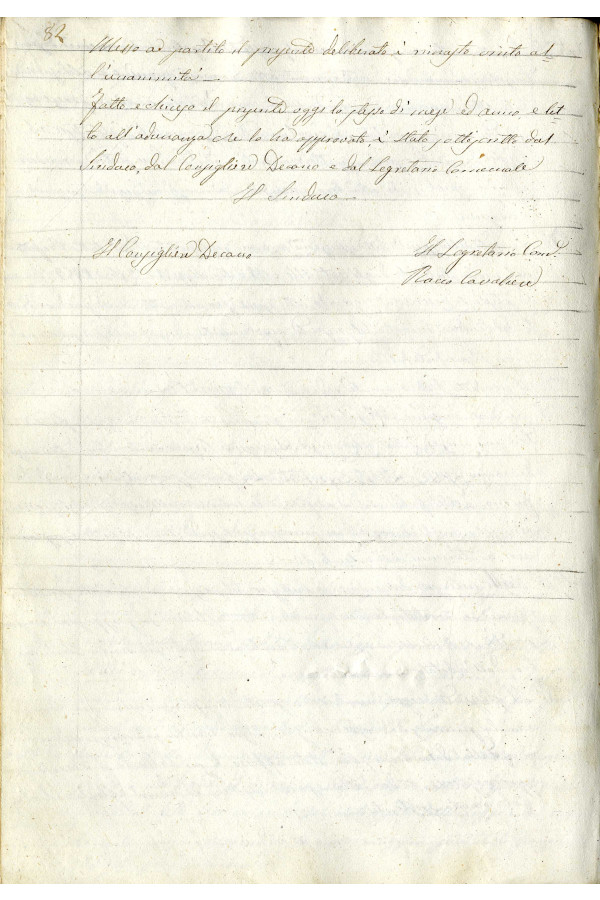 82
Messo ai partito il presente deliberato è rimasto vinto al-
l'unanimità —
Fatto e chiuso il presente oggi lo stesso dì mese ed anno, e let-
to all'adunanza che lo ha approvato, è stato sottoscritto dal
Sindaco, dal Consigliere Decano e dal Segretario Comunale
Il Sindaco —
Il Consigliere Decano
Il Segretario Com.e
Rocco Cavaliere